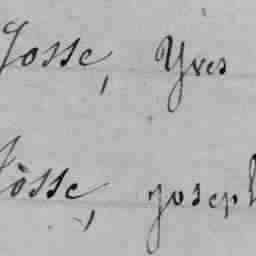 Josse, Yves
Jòsse, joseph